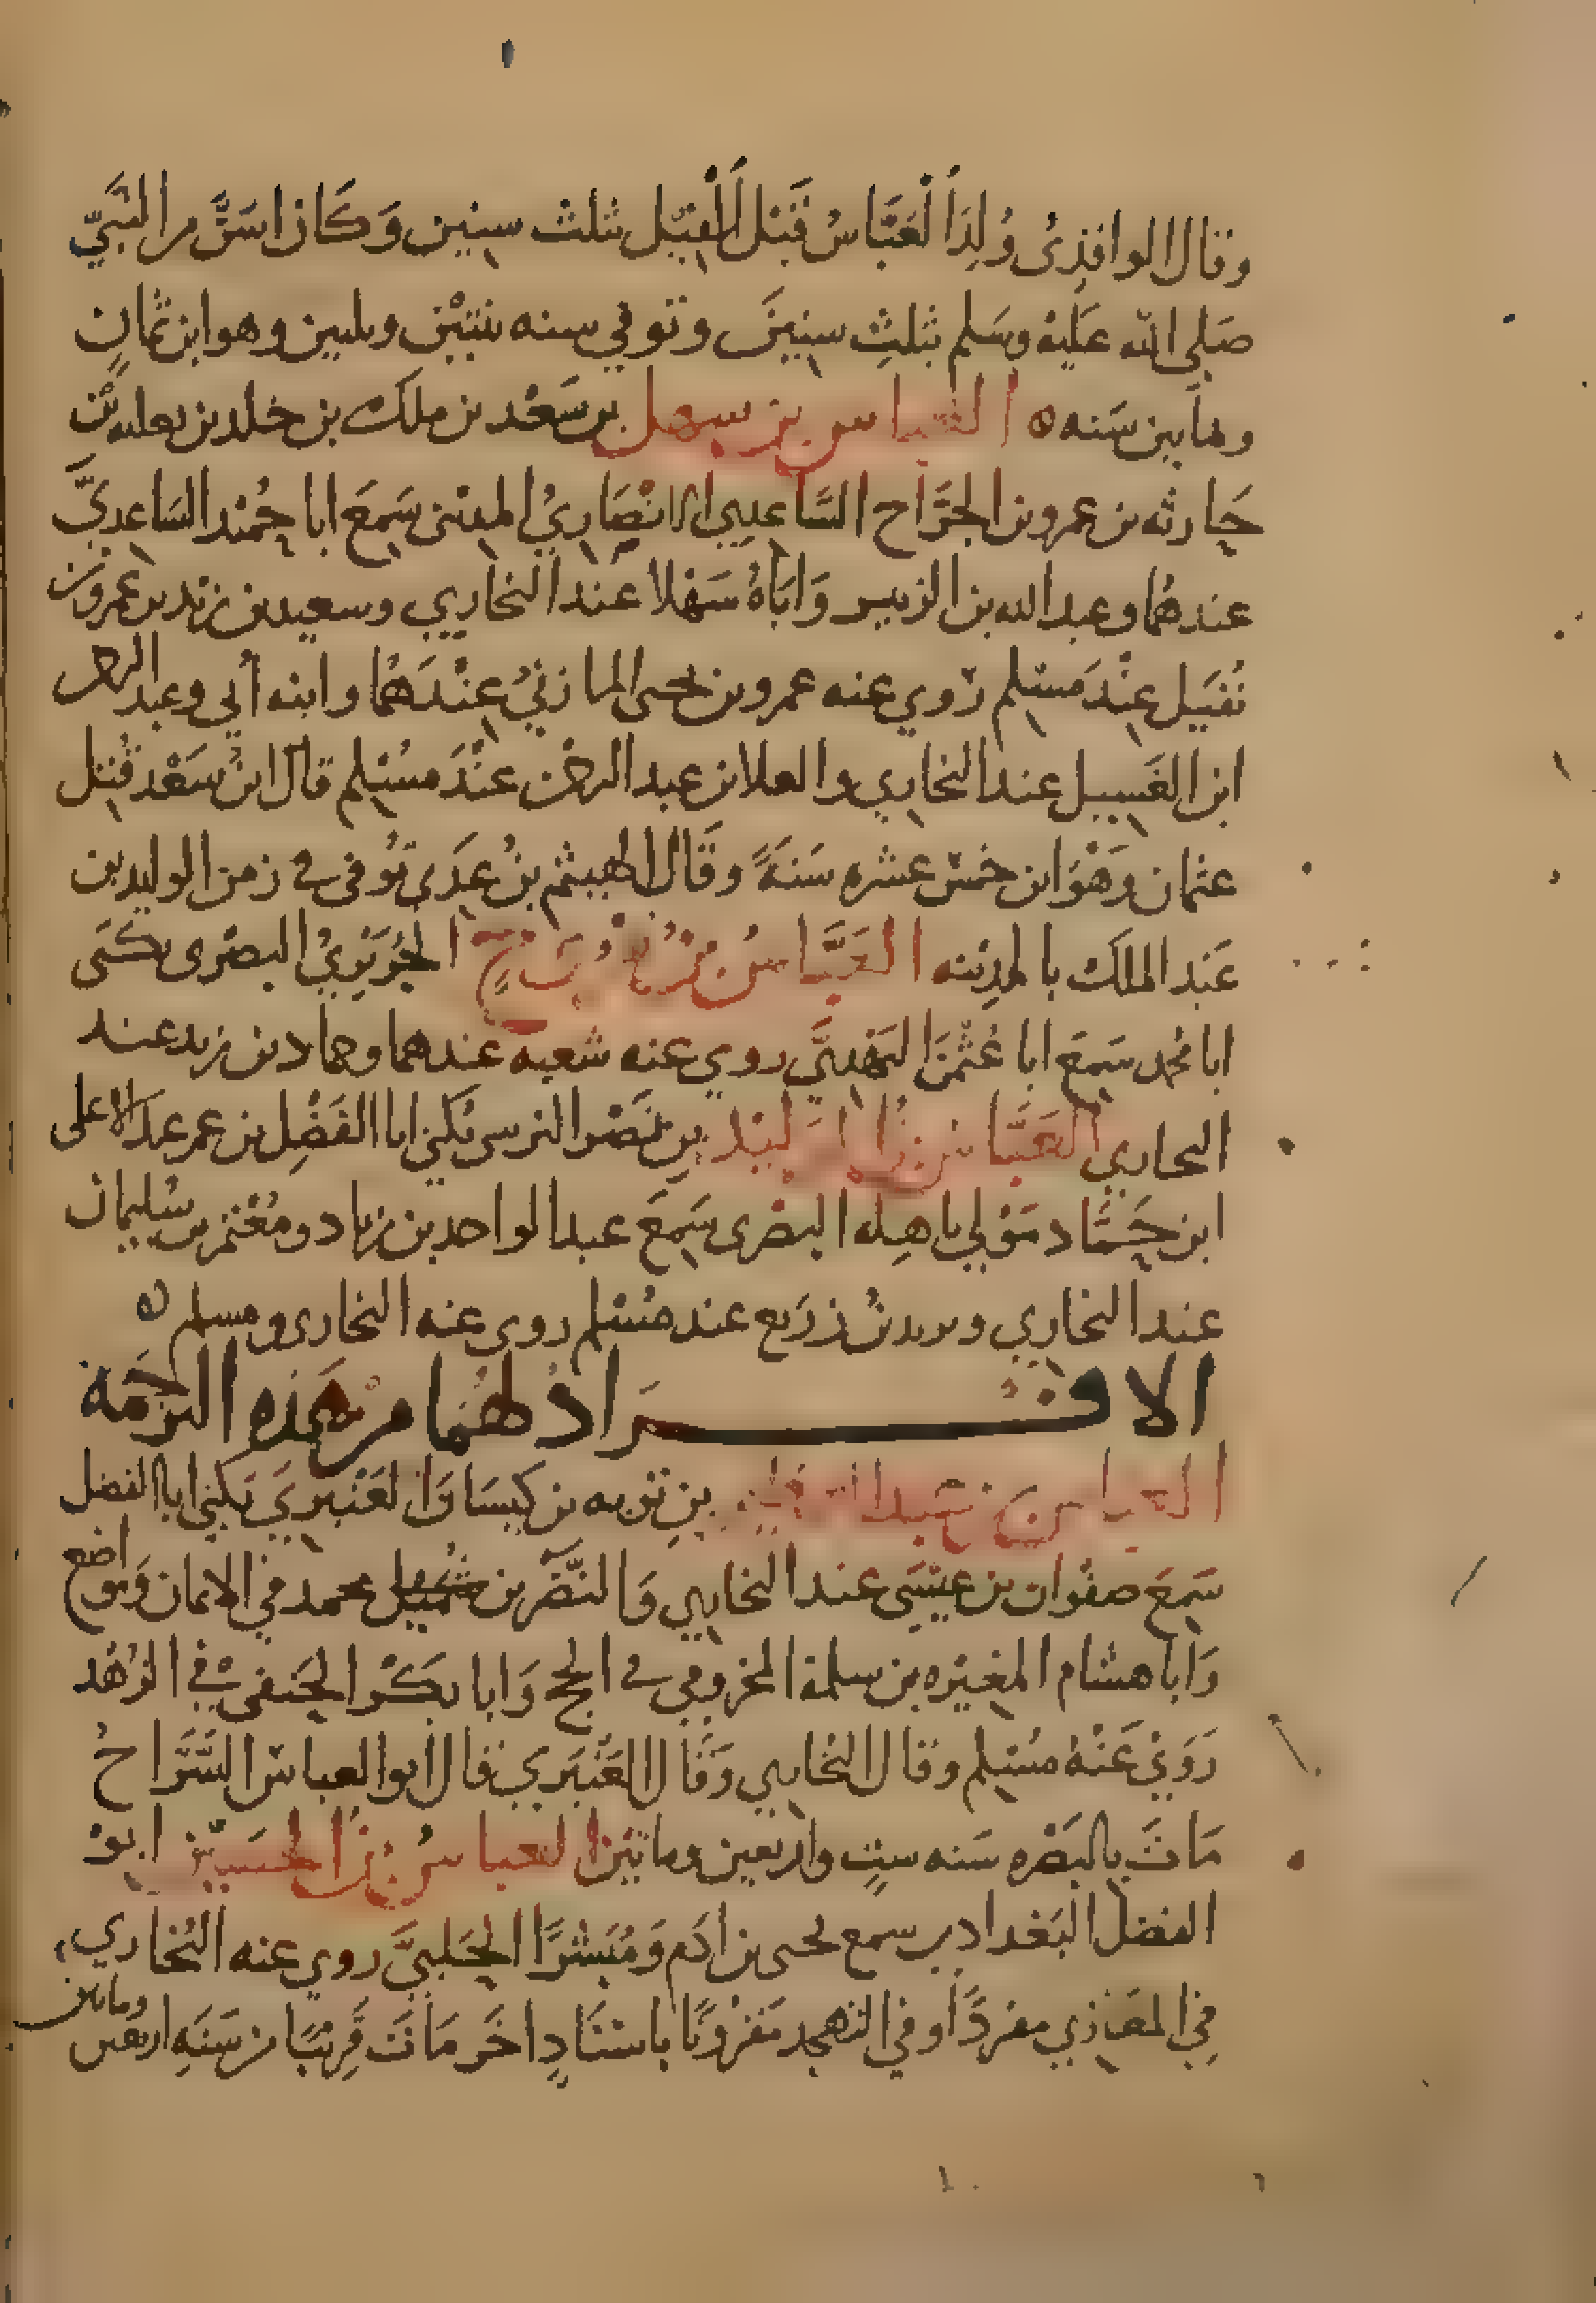 وقال الواقدي وُلِدَ العَبَّاسُ قَبْل الفيل بثلث سنين وَكَان اسَنَّ من النبيّ
صَلى الله عَليْه وسَلم بثلثِ سنينَ وتوفي سنه ثنتيْن وثلثين وهو ابن ثمانٍ
وثمانين سَنه ه العباس بن سهل بن سَعْد بن ملك بن خلد بن ثعلبه بْن
حَارثه بن عمرو بن الجرَّاح السَّاعدي الانْصَاريُّ المديني سَمِعَ ابا حُمَيْد السَاعديَّ
عندهُما وعبد الله بن الزبير وَابَاهُ سَهْلا عند البخاري وسعيد بن زيد بن عمرو بن
نُفَيل عِنْدَ مسْلم رَوي عنه عمرو بن يحيى المازنيُّ عِنْدَهُما وابنه أبي وعبد الرحمن
ابن الغَسِيل عند البخاري والعلا بن عبد الرحمن عنْدَ مسْلم قال ابنُ سَعْد قُتل
عثمان وَهْوَ ابن خمسَ عشره سَنَةً وقَال الهيثم بنُ عَدَي تُوفي في زمن الوليد بن
عَبْد الملك بالمدينه العَبَّاسُ بنُ فَرُّوخٍ الجُرَيْريُّ البصْرى يكنَى
ابا محمد سَمِعَ ابا عُثْمَن النَهْديَّ روي عنه شعبه عندهما وحماد بن زيد عند
البخاري العَبَّاسُ بنُ الوَليْد بن نَصْر النرسي يُكْني ابا الفَضْل بن عم عبد الاعلى
ابن حَمَّاد مَوْلي باهِله البَصْرى سَمِعَ عبد الواحد بن زياد ومُعْتمر بن سُليمان
عند البخاري ويزيد بنُ زُرَيع عند مُسْلم روى عنه البخارى ومسلم ه
الافـــراد لهُما من هَذه الترجَمة
العباس بن عبد العظيم بنِ توبه بن كيسَان العَنْبري يَكني ابا الفضل
سَمِعَ صفوان بن عيسَى عند البخاري وَالنَّضْر بن محمد في الايمان ومواضع
وَابا هشام المغيرَه بن سلمة المخزومي في الحج وَابا بكر الحَنفي في الزهْد
رَوَيْ عَنْهُ مسْلم وقال البُخاري وَقَال العَنْبَري قال أبو العباس السَّرَّاجُ
مَاتَ بالبَصْره سَنه ستٍ واربعين وماتين العباسُ بنُ الحسَين ابوْ
الفضل البَغدادي سمع يحيى بن ادَم وَمُبَشرًا الحَلبيَّ روي عنه البُخاري
في المغَازي مفردًا وفي التهجد مَقرُونًا باسْنَادٍ اخَر مَاتَ قريبًا من سَنَةِ اربعين
وماتين